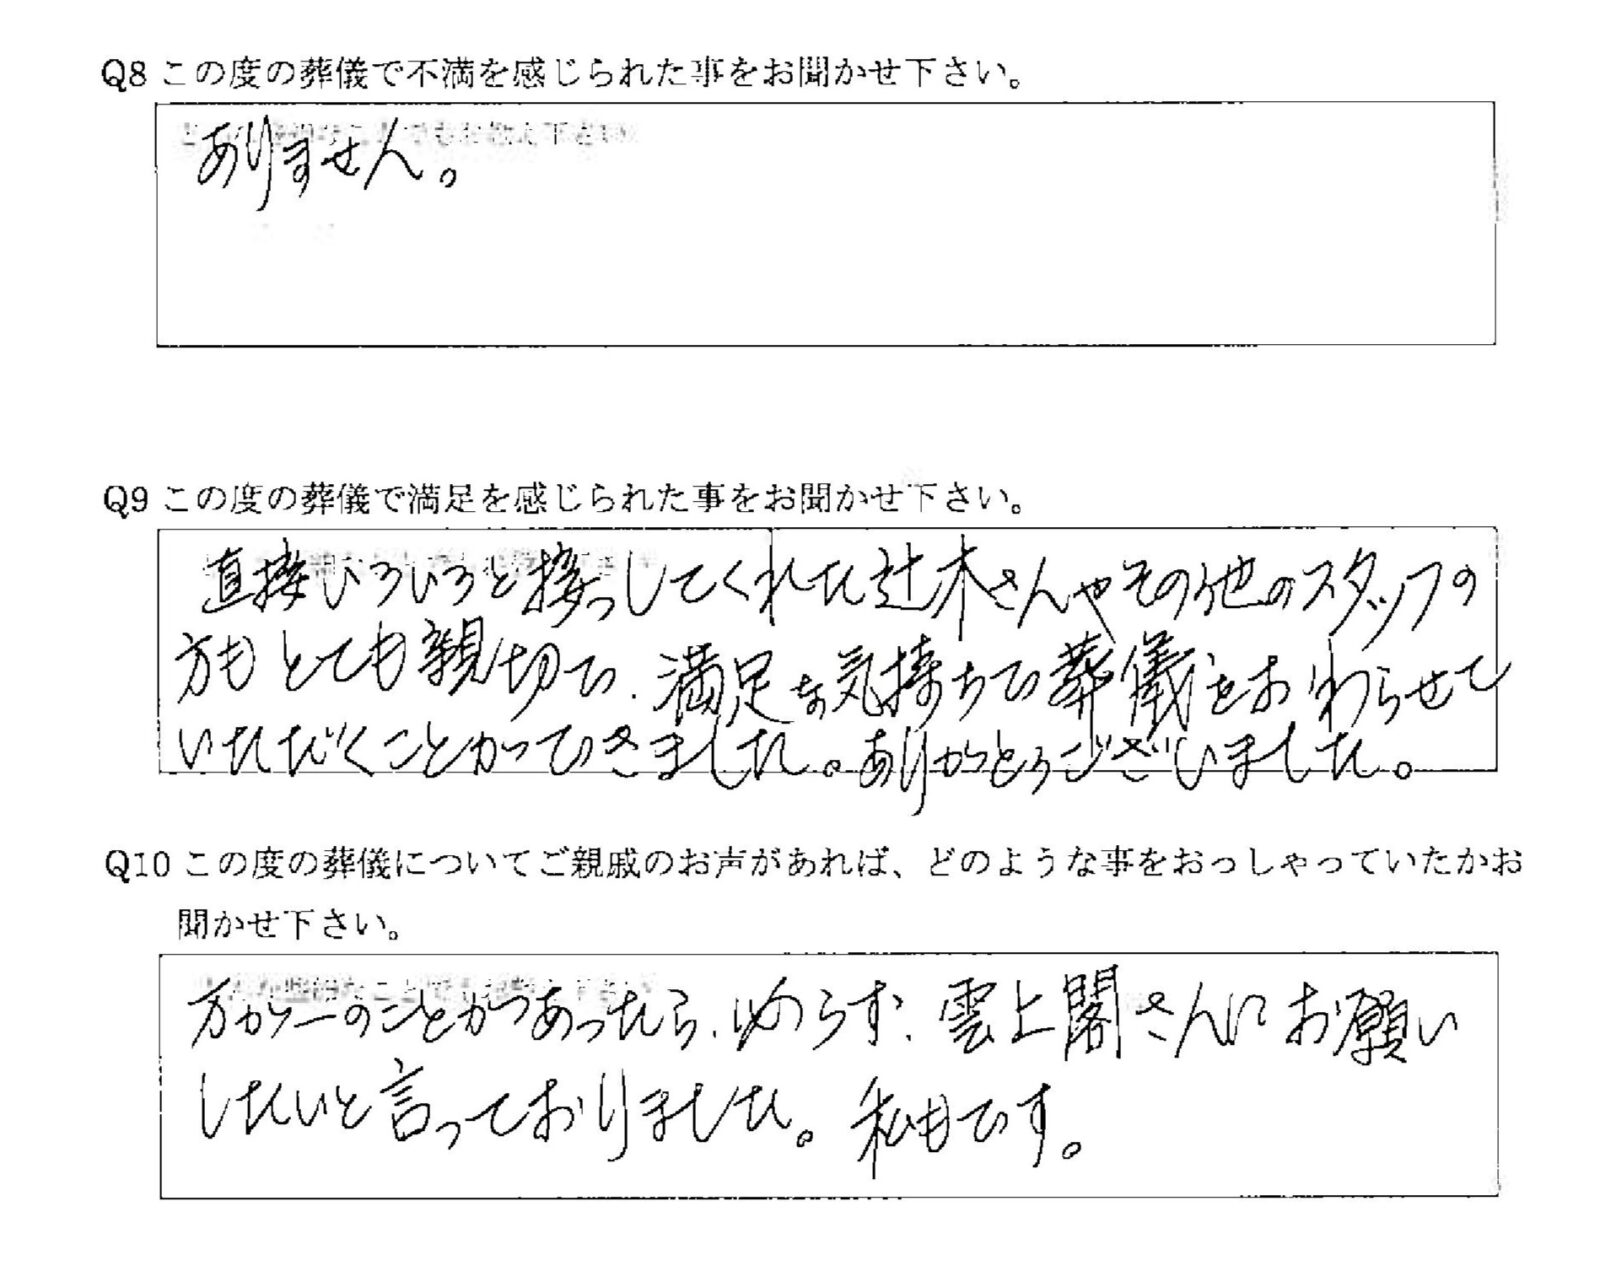 Q8 この度の葬儀で不満を感じられた事をお聞かせ下さい。
ありません。
Q9 この度の葬儀で満足を感じられた事をお聞かせ下さい。
直接いろいろと接っしてくれた辻木さんやその他のスタッフの
方もとても親切で、満足な気持ちで葬儀をおわらせて
いただくことができました。ありがとうございました。
Q10 この度の葬儀についてご親戚のお声があれば、どのような事をおっしゃっていたかお
聞かせ下さい。
万が一のことがあったら、必らず、雲上閣さんにお願い
したいと言っておりました。私もです。